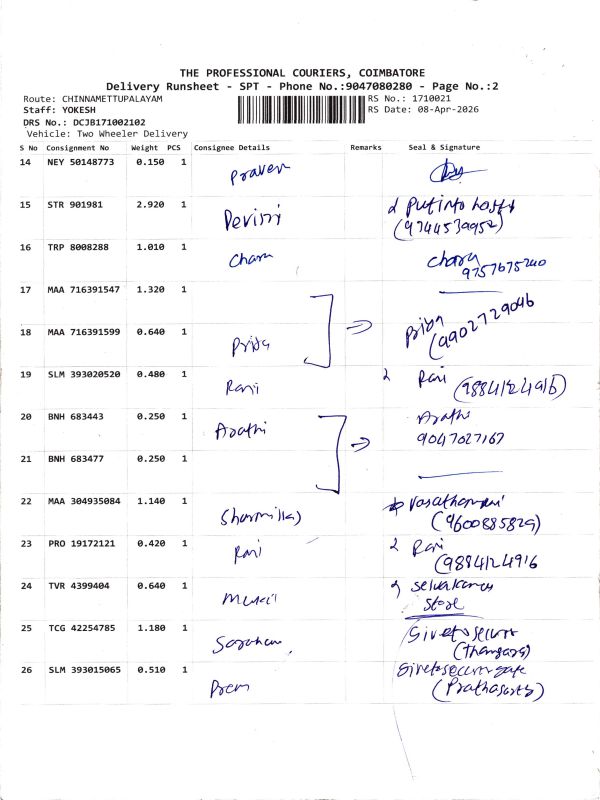 THE PROFESSIONAL COURIERS, COIMBATORE
Delivery Runsheet - SPT - Phone No.:9047080280 - Page No.:2
Route: CHINNAMETTUPALAYAM
Staff: YOKESH
DRS No.: DCJB171002102
Vehicle: Two Wheeler Delivery
RS No.: 1710021
RS Date: 08-Apr-2026
S No Consignment No Weight PCS Consignee Details Remarks Seal & Signature
14 NEY 50148773 0.150 1 Praven
15 STR 901981 2.920 1
(9744539952)
16 TRP 8008288 1.010 1 Charu Charu
9757675240
17 MAA 716391547 1.320 1
18 MAA 716391599 0.640 1 Priya Priya
(9902729046
19 SLM 393020520 0.480 1 Rani Rani (9884124916)
20 BNH 683443 0.250 1 Arathi Arathi
9047027167
21 BNH 683477 0.250 1
22 MAA 304935084 1.140 1 Sharmilla)
(9600885829)
23 PRO 19172121 0.420 1 Rani Rani
(9884124916
24 TVR 4399404 0.640 1
Store
25 TCG 42254785 1.180 1
26 SLM 393015065 0.510 1 Prem